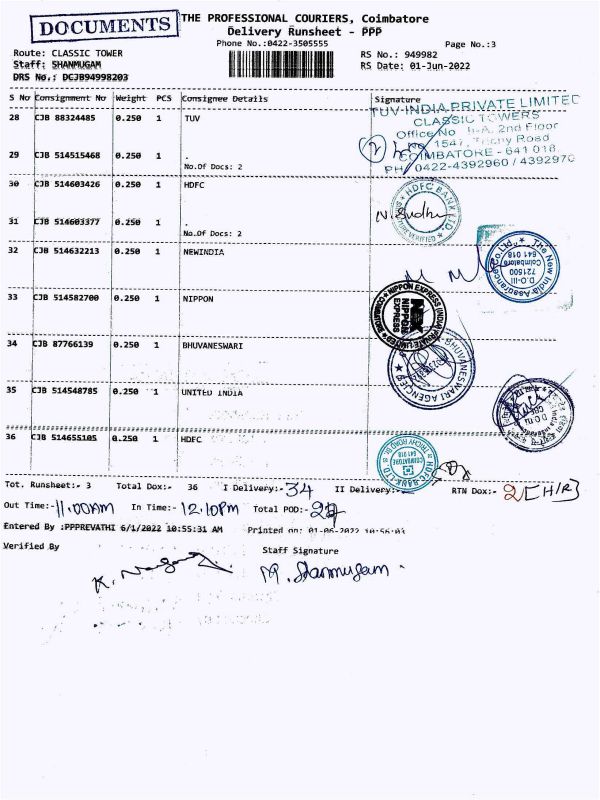 DOCUMENTS
THE PROFESSIONAL COURIERS, Coimbatore
Delivery Runsheet - PPP
Phone No.:0422-3505555
Page No.:3
Route: CLASSIC TOWER
RS No.: 949982
Staff: SHANMUGAM
RS Date: 01-Jun-2022
DRS No.: DCJB94998203
S No Consignment No Weight PCS Consignee Details Signature
28 CJB 88324485 0.250 1 TUV
TUV INDIA PRIVATE LIMITED
CLASSIC TOWERS
Office No 2nd Floor
1547, Trichy Road
COIMBATORE - 641 018
PH 0422-4392960 / 4392970
29 CJB 514515468 0.250 1 .
No.Of Docs: 2
30 CJB 514603426 0.250 1 HDFC
HDFC BANK LTD.
N. Sudha
31 CJB 514603377 0.250 1 .
No.Of Docs: 2
32 CJB 514632213 0.250 1 NEWINDIA
The New India Assurance Co. Ltd.,
D.O-III
721500
Coimbatore
641 018
33 CJB 514582700 0.250 1 NIPPON
NIPPON EXPRESS (INDIA) PRIVATE LIMITED
COIMBATORE
NEX
NIPPON
EXPRESS
34 CJB 87766139 0.250 1 BHUVANESWARI
BHUVANESWARI AGENCIES
35 CJB 514548785 0.250 1 UNITED INDIA
36 CJB 514655105 0.250 1 HDFC
HDFC BANK LTD.
TRICHY ROAD BR.
COIMBATORE
641 018
Tot. Runsheet:- 3 Total Dox:- 36 I Delivery:- 34 II Delivery:- RTN Dox:- 2 [H/R]
Out Time:- 11.00AM In Time:- 12.10PM Total POD:-
Entered By :PPPREVATHI 6/1/2022 10:55:31 AM Printed on: 01-06-2022 10:56:03
Verified By
Staff Signature
M. Shanmugam